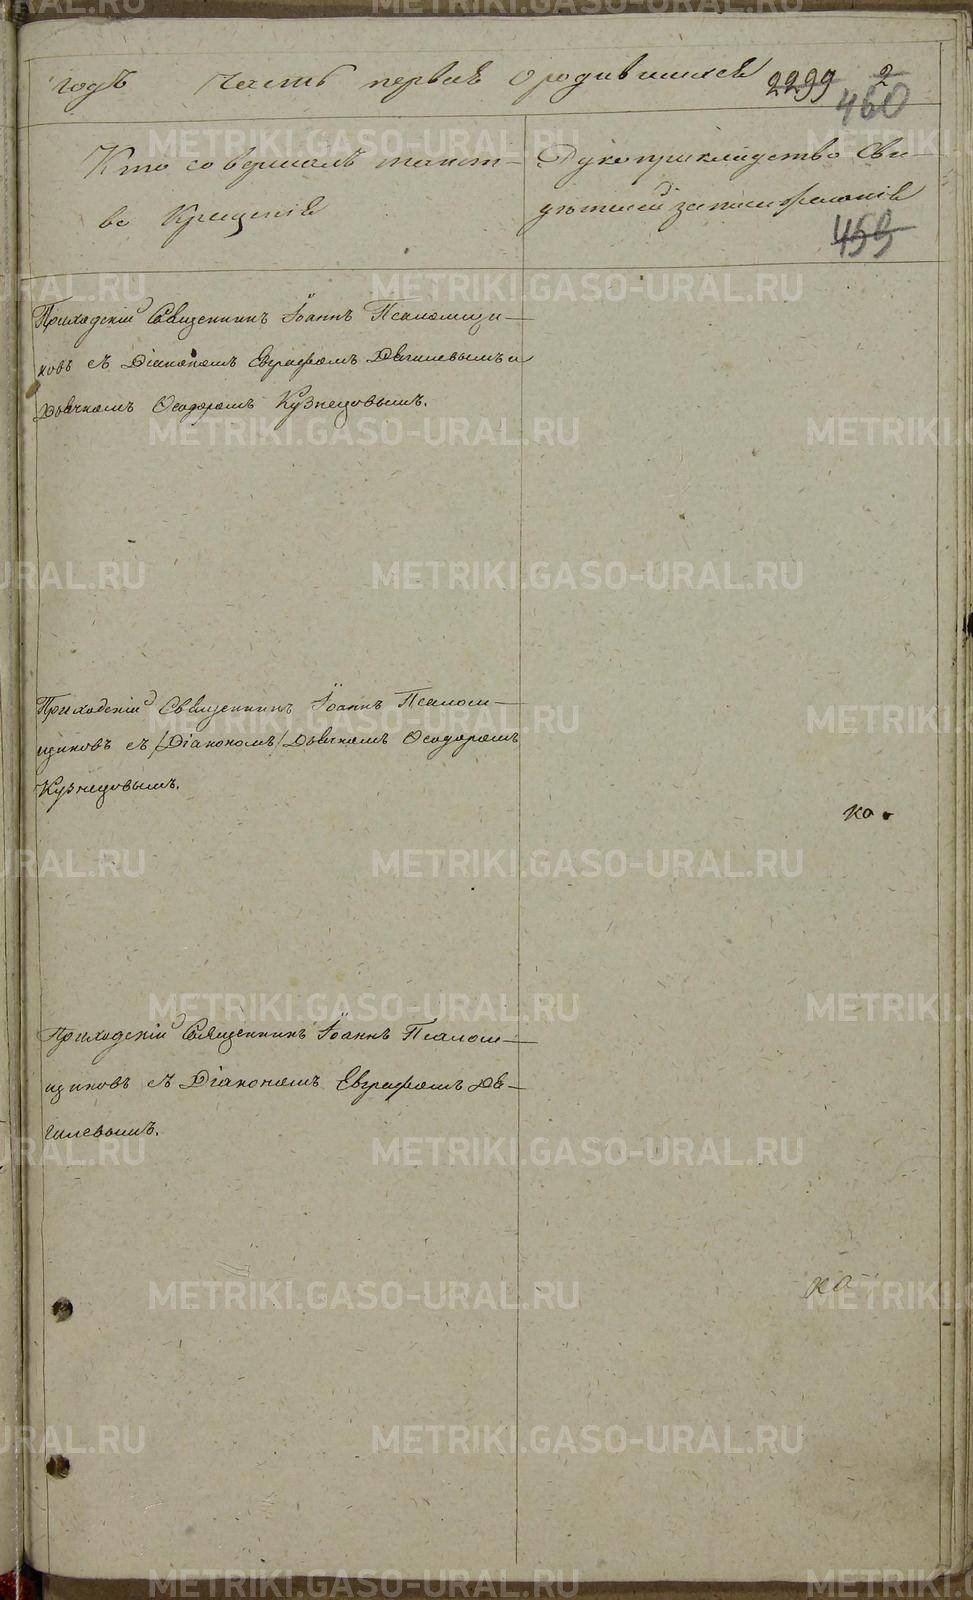 годъ Часть первая о родившихся 2299 2
460
Кто совершалъ таинст-
во Крещенія
Рукоприкладство сви-
дѣтелей записи по желанію
459
Приходскій Священникъ Іоаннъ Псаломщи-
ковъ съ Діакономъ Евграфомъ Двигилевымъ и
Дьячкомъ Ѳеодоромъ Кузнецовымъ.
Приходскій Священникъ Іоаннъ Псалом-
щиковъ съ /Діакономъ/ Дьячкомъ Ѳеодоромъ
Кузнецовымъ.
ка
Приходскій Священникъ Іоаннъ Псалом-
щиковъ съ Діакономъ Евграфомъ Дви-
гилевымъ.
ка
METRIKI.GASO-URAL.RU